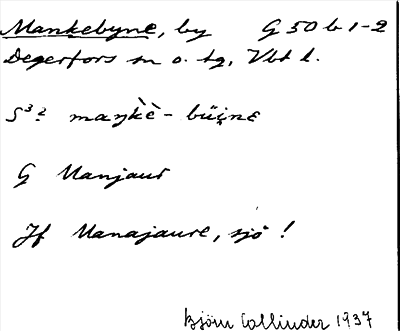 Mankebyne, by G 50 b 1-2
Degerfors sn o. tg, Vbt l.
S³? maŋkè̀ - büi̯nɛ
G Manjaur
Jf Manajaure, sjö !
Björn Collinder 1937